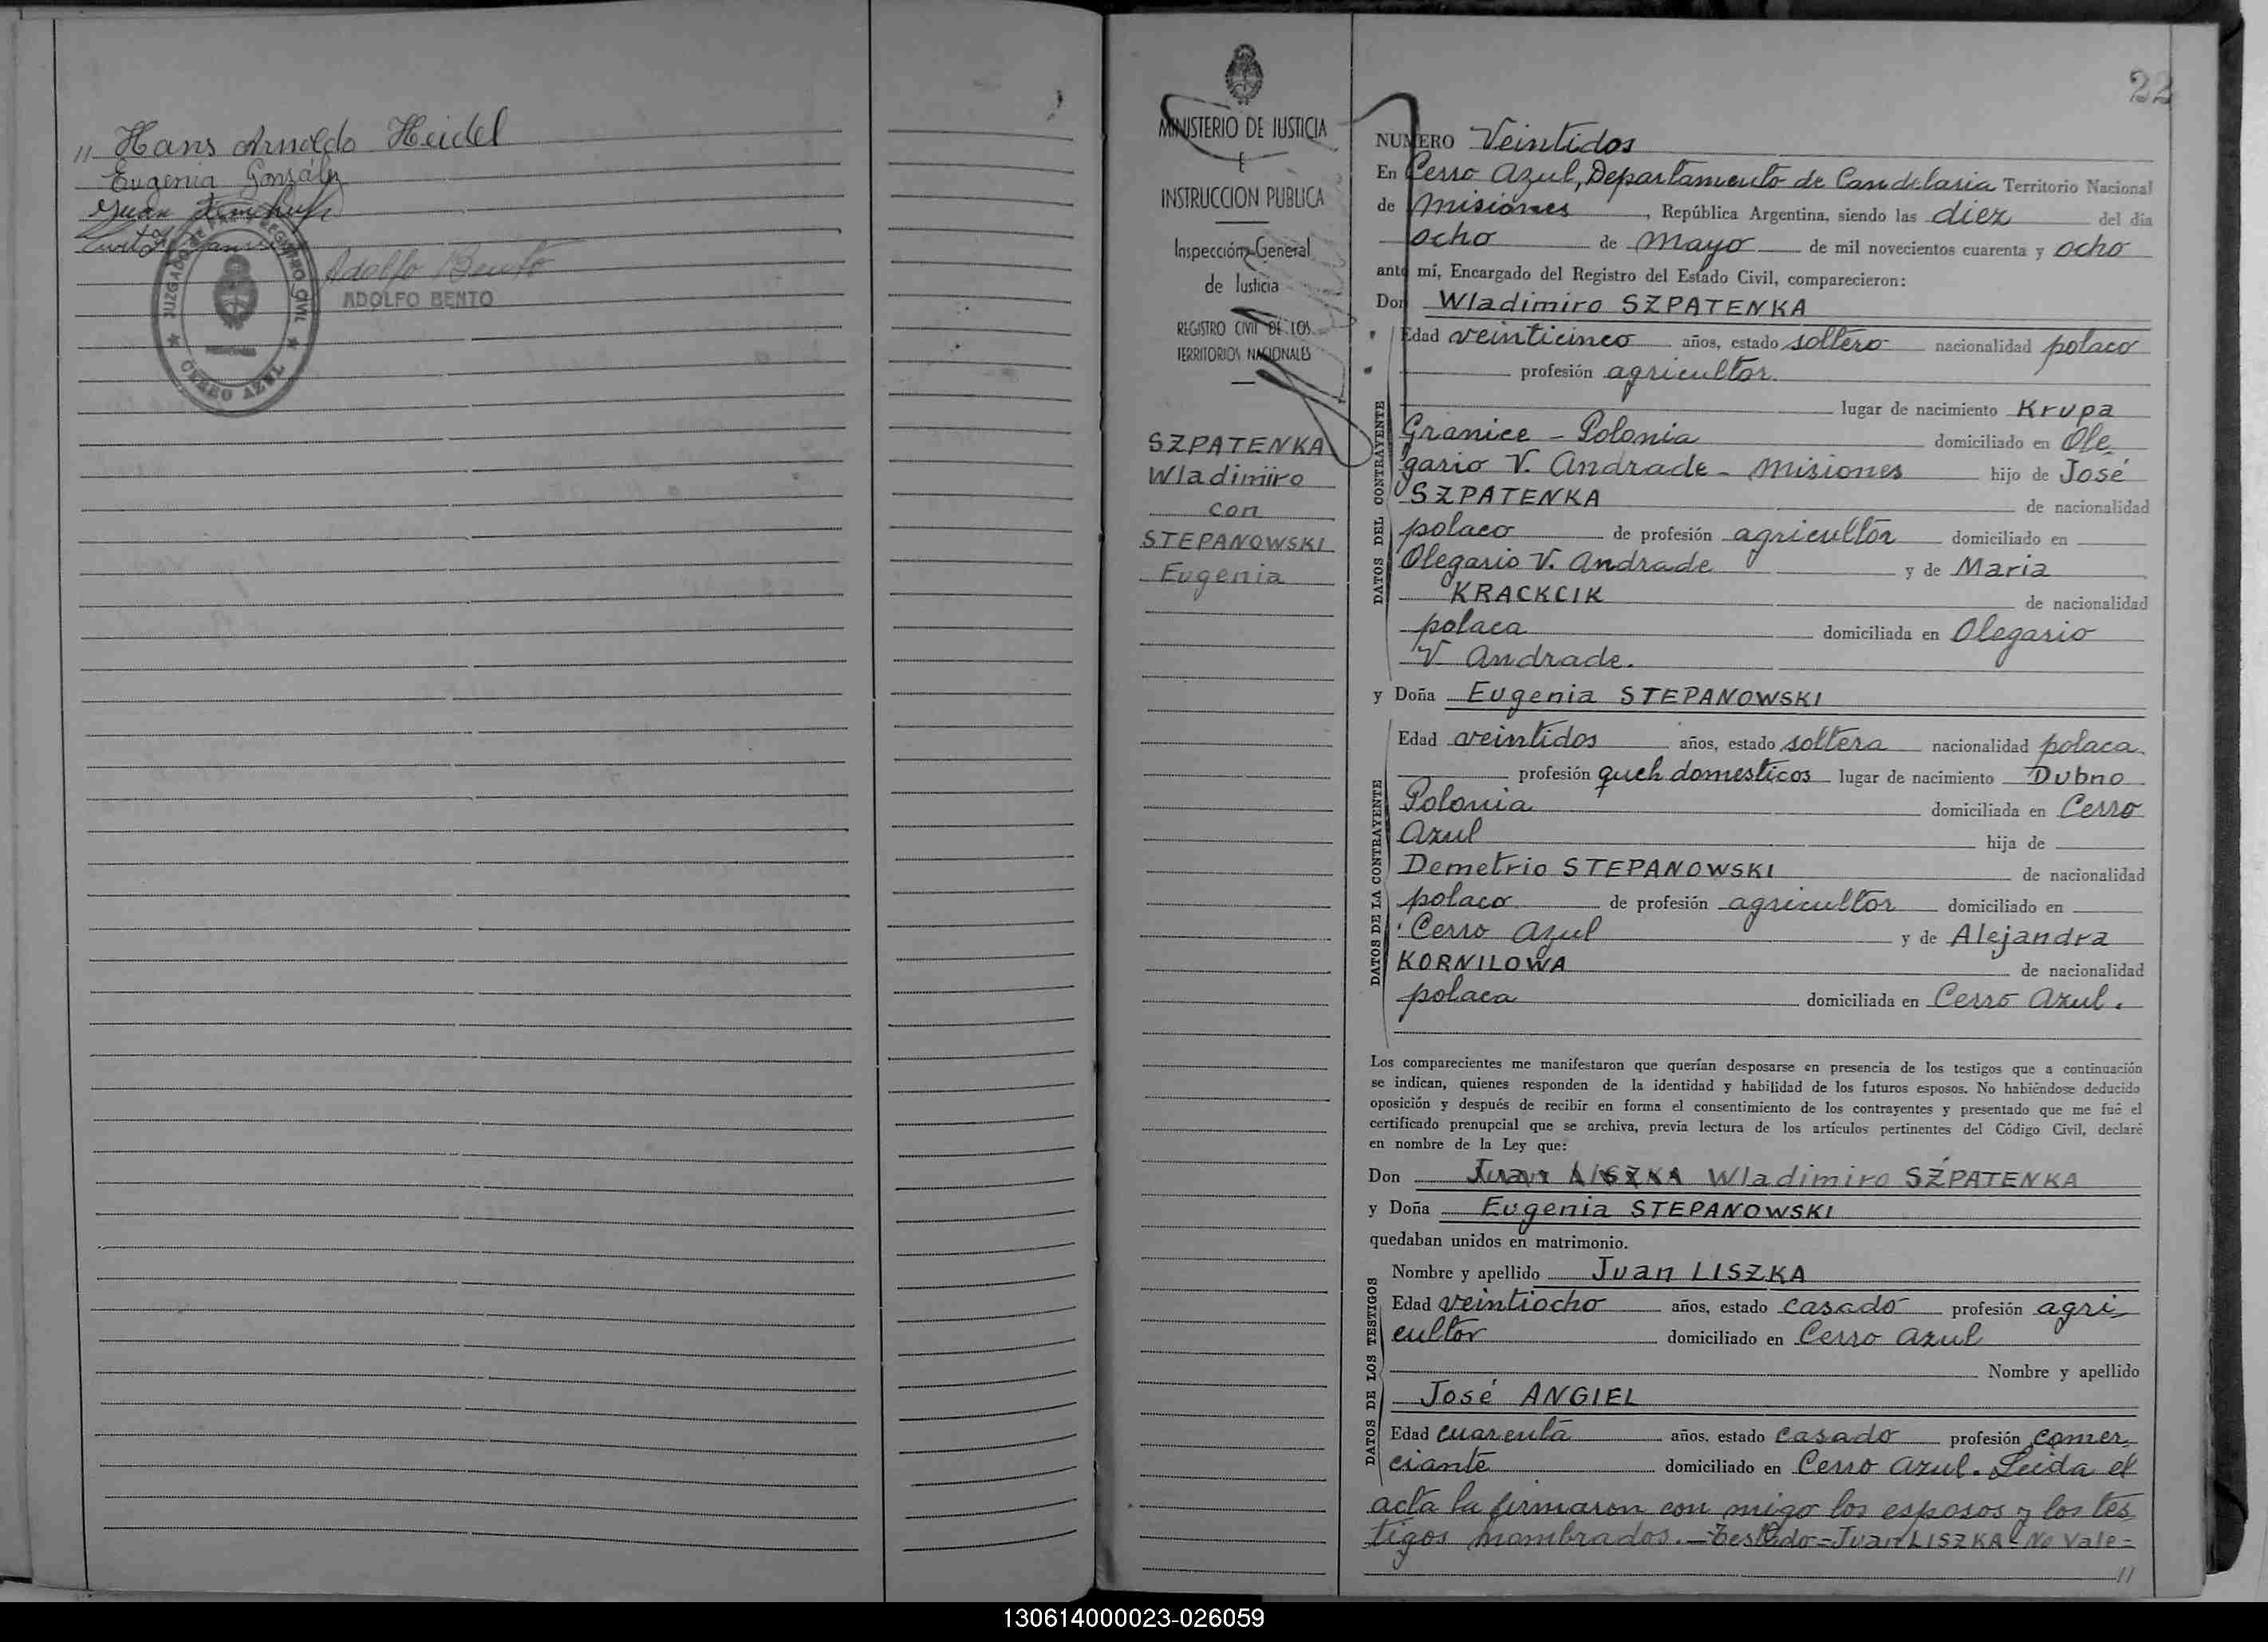 " Hans Arnoldo Heidel
Eugenia González
Juan
JUZGADO DE PAZ Y REGISTRO CIVIL
CERRO AZUL
Adolfo Bento
ADOLFO BENTO
MINISTERIO DE JUSTICIA
E
INSTRUCCION PUBLICA
Inspección General
de Justicia
REGISTRO CIVIL DE LOS
TERRITORIOS NACIONALES
SZPATENKA
Wladimiro
con
STEPANOWSKI
Eugenia
22
NUMERO Veintidos
En Cerro Azul, Departamento de Candelaria Territorio Nacional
de Misiones, República Argentina, siendo las diez del día
ocho de Mayo de mil novecientos cuarenta y ocho
ante mí, Encargado del Registro del Estado Civil, comparecieron:
Don Wladimiro SZPATENKA
DATOS DEL CONTRAYENTE
Edad veinticinco años, estado soltero nacionalidad polaco
profesión agricultor.
lugar de nacimiento Krupa
Granice - Polonia domiciliado en Ole
gario V. Andrade - Misiones hijo de José
SZPATENKA de nacionalidad
polaco de profesión agricultor domiciliado en
Olegario V. Andrade y de Maria
KRACKCIK de nacionalidad
polaca domiciliada en Olegario
V. Andrade.
y Doña Eugenia STEPANOWSKI
DATOS DE LA CONTRAYENTE
Edad veintidos años, estado soltera nacionalidad polaca.
profesión queh. domesticos lugar de nacimiento Dubno
Polonia domiciliada en Cerro
Azul hija de
Demetrio STEPANOWSKI de nacionalidad
polaco de profesión agricultor domiciliado en
Cerro Azul y de Alejandra
KORNILOWA de nacionalidad
polaca domiciliada en Cerro Azul.
Los comparecientes me manifestaron que querían desposarse en presencia de los testigos que a continuación
se indican, quienes responden de la identidad y habilidad de los futuros esposos. No habiéndose deducido
oposición y después de recibir en forma el consentimiento de los contrayentes y presentado que me fué el
certificado prenupcial que se archiva, previa lectura de los artículos pertinentes del Código Civil, declaré
en nombre de la Ley que:
Don Juan LISZKA Wladimiro SZPATENKA
y Doña Eugenia STEPANOWSKI
quedaban unidos en matrimonio.
DATOS DE LOS TESTIGOS
Nombre y apellido Juan LISZKA
Edad veintiocho años, estado casado profesión agri-
cultor domiciliado en Cerro Azul
Nombre y apellido
José ANGIEL
Edad cuarenta años, estado casado profesión comer-
ciante domiciliado en Cerro Azul. Leida el
acta la firmaron con migo los esposos y los tes-
tigos nombrados. - Testado = Juan LISZKA = No Vale =
"
130614000023-026059